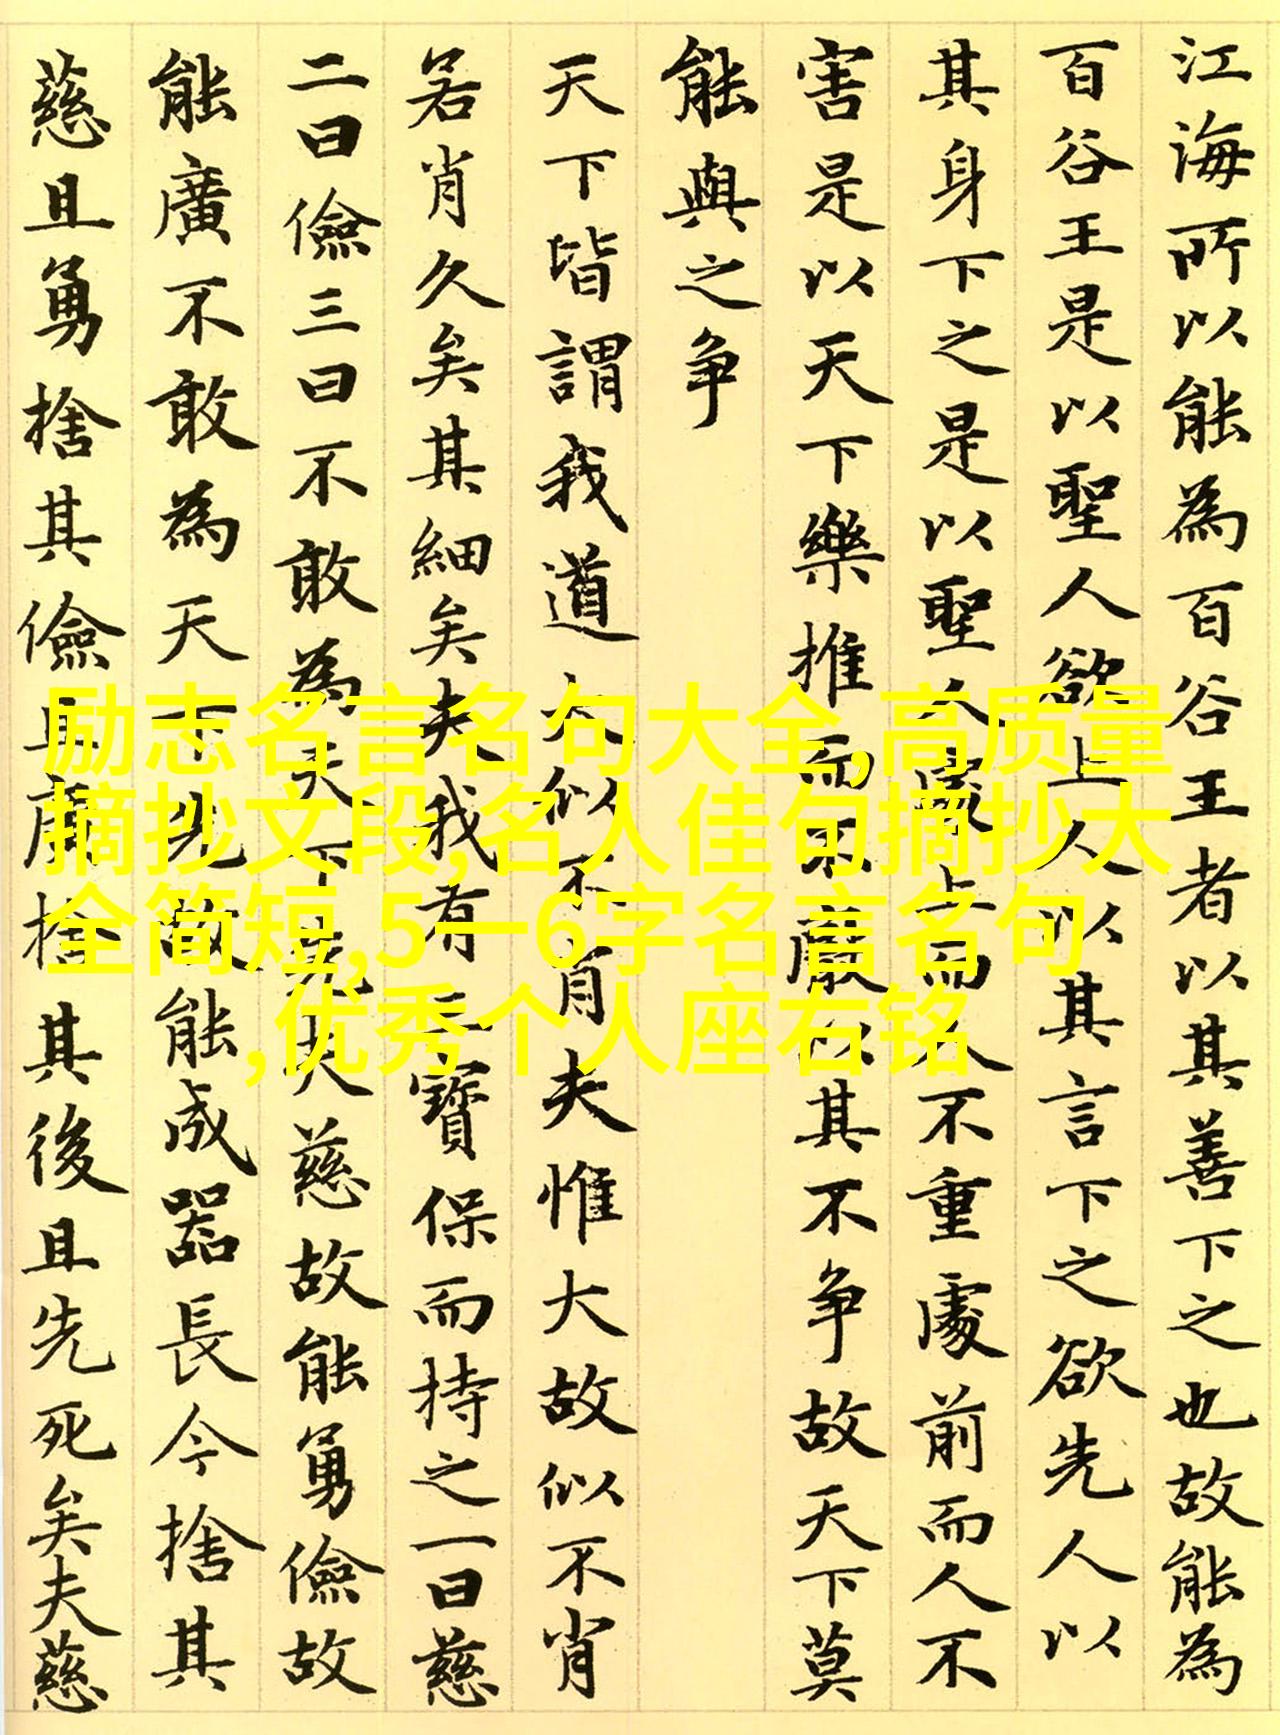 江海所以能為百谷王者以其善下之也故能為
百谷王是以聖人欲上人以其言下之欲先人以
其身下之是以聖人處上而人不重處前而人不
害是以天下樂推而不厭以其不争故天下莫
能與之争
天下皆謂我道大似不肖夫惟大故似不肖
若肖久矣其細矣夫我有三寶保而持之一曰慈
二曰儉三曰不敢為天下先夫慈故能勇儉故
能廣不敢為天下先故能成器長今捨其
慈且勇捨其儉且廣捨其後且先死矣夫慈
励志名言名句大全,高质量
摘抄文段,名人佳句摘抄大
全简短,5一6字名言名句
,优秀个人座右铭